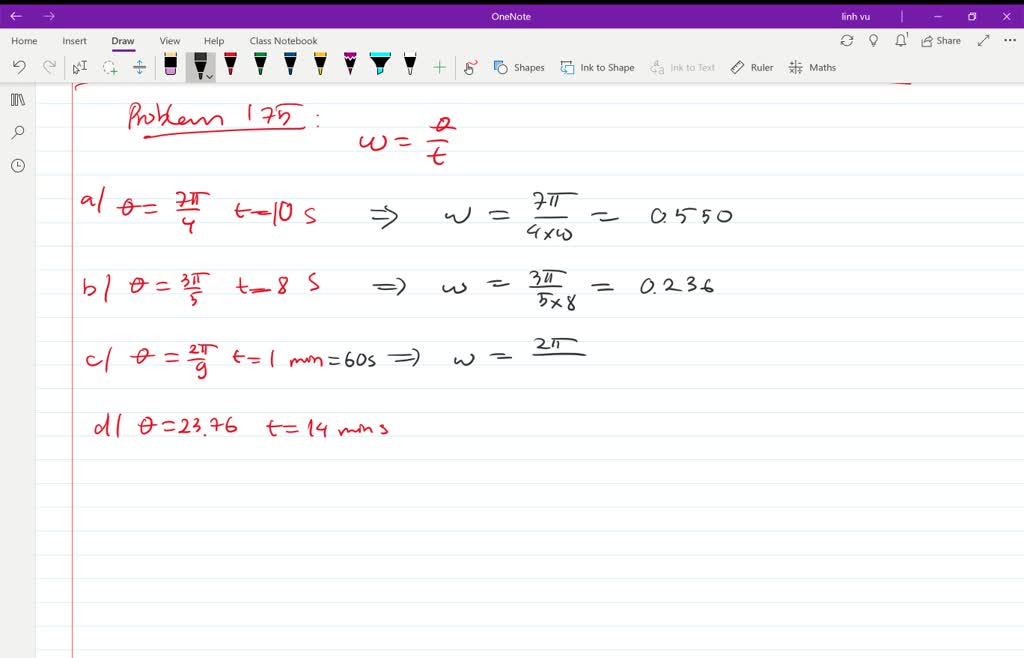 OneNote
linh vu
Home Insert Draw View Help Class Notebook
Share
Shapes Ink to Shape Ink to Text Ruler Maths
Problem 175:
ω = θ/t
a/ θ = 7π/4 t = 10 s ⇒ ω = 7π/4×10 = 0.550
b/ θ = 3π/5 t = 8 s ⇒ ω = 3π/5×8 = 0.236
c/ θ = 2π/9 t = 1 min = 60s ⇒ ω = 2π
d/ θ = 23.76 t = 14 mins